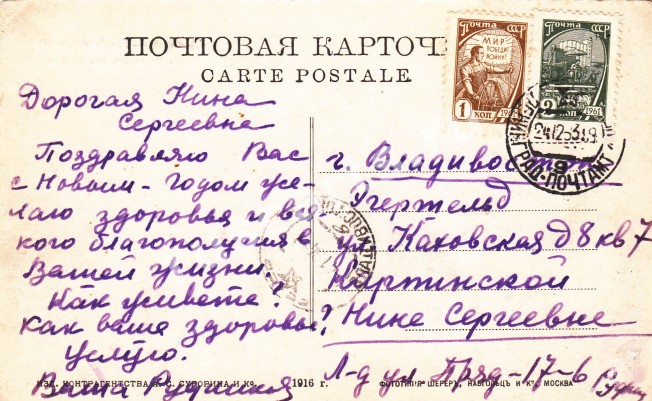 ПОЧТОВАЯ КАРТОЧ
CARTE POSTALE
ПОЧТА СССР
МИР ПОБЕДИТ ВОЙНУ
1 КОП 1961
ПОЧТА СССР
2 КОП 1961
ГРАД-ПОЧТАМТ
Дорогая Нина
Сергеевна
Поздравляю Вас
с Новым - Годом же-
лаю здоровья и вся
кого благополучия в
Вашей жизни.
Как живете?
Как ваше здоровье?
Целую.
Ваша
г. Владивосток
Эгершельд
ул Каховская д 8 кв 7
Картинской
Нине Сергеевне
Л-д ул Пряд-17-6
ИЗД. КОНТРАГЕНТСТВА А. С. СУВОРИНА И К°. 1916 г. ФОТОТИПІЯ ШЕРЕРЪ, НАБГОЛЬЦЪ И К°, МОСКВА